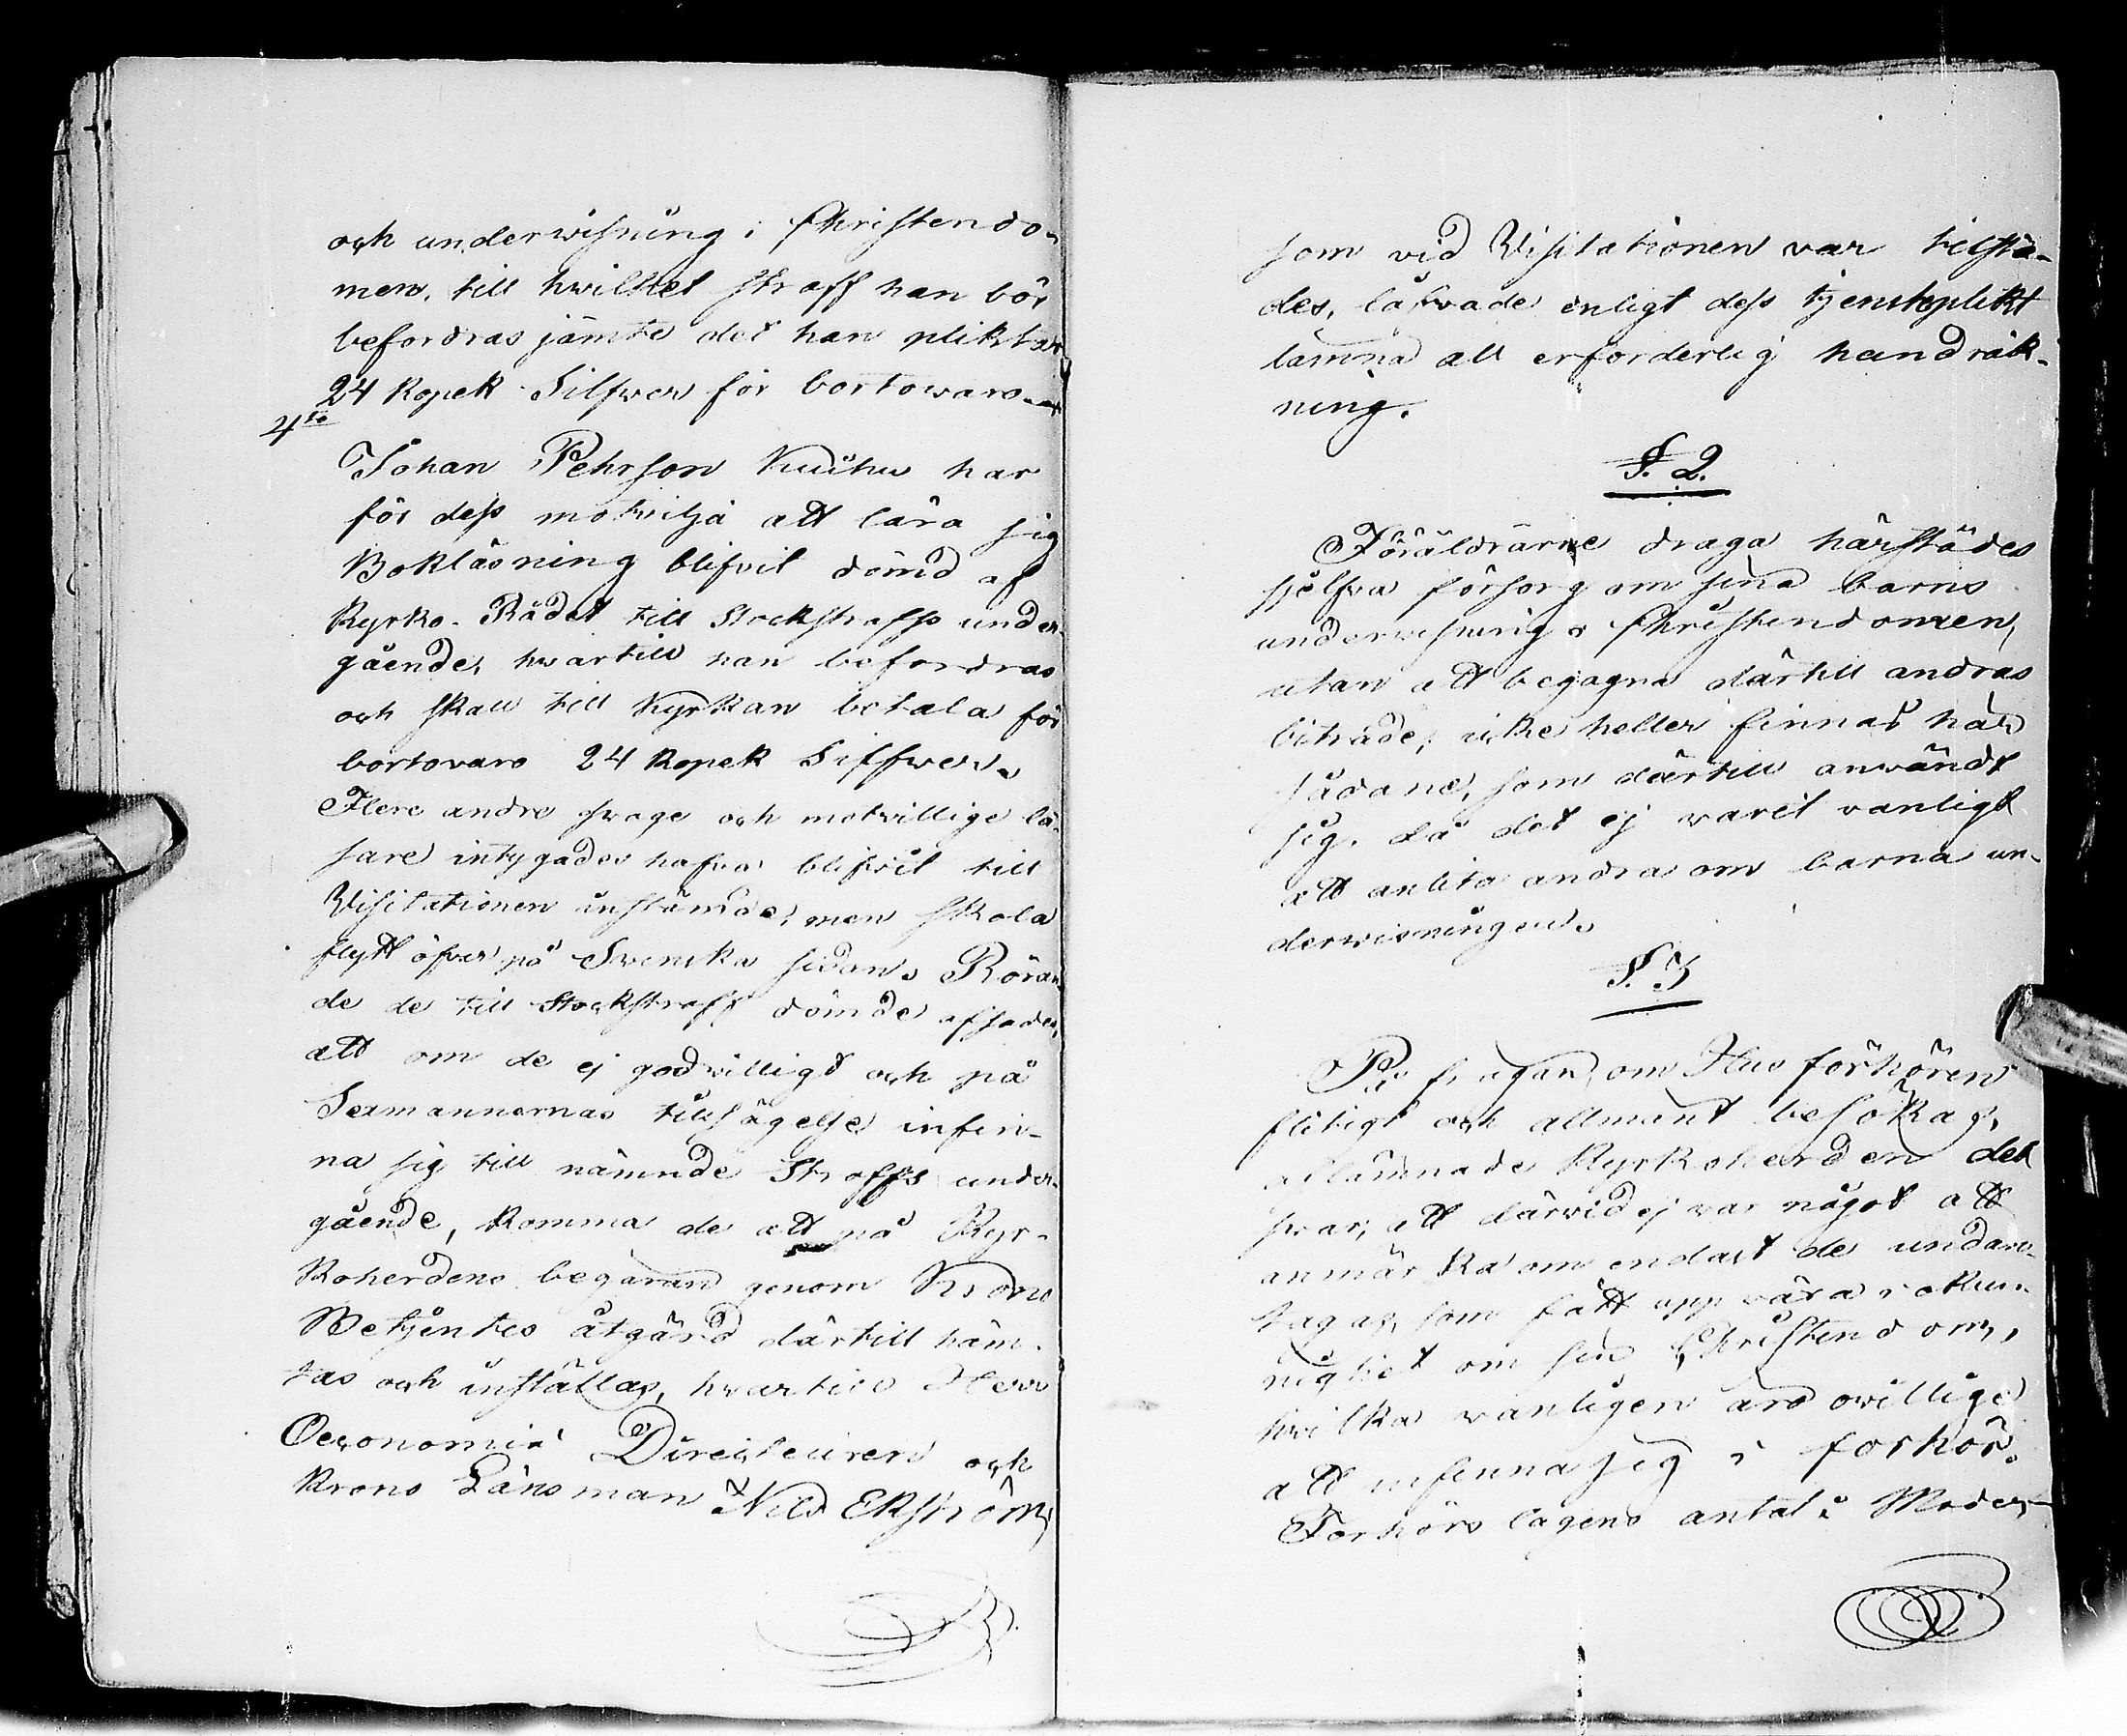 och underwisning i Christendo-
men, till hwilket straff han bör
befordras jämte det han pliktar
24 Kopek Silfwer för bortowaro.
4to
Johan Pehrson Kuuhu har
för dess motvilja att lära sig
Bokläsning blifvit dömd af
Kyrko-Rådet till Stockstraffs under-
gående, hwartill han befordras
och skall till Kyrkan betala för
bortovaro 24 Kopek Silfwer.
Flere andre swage och motvillige lä-
sare intygades hafva blifvit till
Visitationen instämde, men skola
flytt öfver på Svenska sidan. Röran-
de de till Stockstraff dömde afsades,
att om de ej godwilligt och på
Sexmannernas tillsägelse infin-
na sig till nämnde Straffs under-
gående, komma de att på Kyr-
koherdens begäran genom Krono
Betjentes åtgärd därtill häm-
tas och inställas, hvartill Herr
Oeconomiæ Directeuren och
Krono Länsman Nils Ekström,
som vid Visitationen var tillstä-
des, låfvade enligt dess tjensteplikt
lämna all erforderlig handräk-
ning.
§. 2.
Föräldrarne draga härstädes
sjelfva försorg om sina barns
underwisning i Christendomen,
utan att begagna därtill andras
biträde; icke heller finnas här
sådane, som därtill anwändt
sig, då det ej varit vanligt
att anlita andra om barna un-
derwisningen.
§. 3
På frågan, om Hus förhören
flitigt och allmänt besökas,
aflämnade Kyrkoherden det
svar, att därvid ej var något att
anmärka om endast de undan-
tagas, som fått upp växa i okun-
nighet om sin Christendom,
hvilka vanligen äro ovillige
att infinna sig i förhör.
Förhörs lagens antal i Moder-